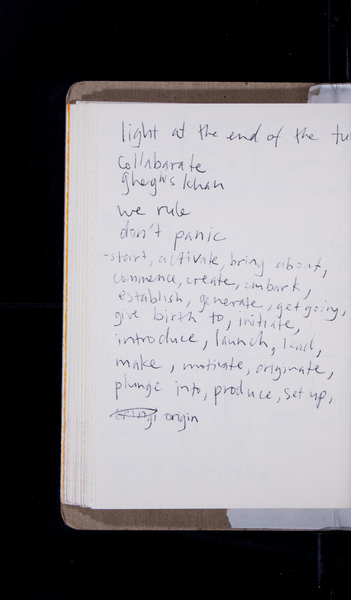 light at the end of the tu
collabarate
gheghis khan
we rule
don't panic
-start, activate, bring about,
commence, create, embark,
establish, generate, get going,
give birth to, initiate,
introduce, launch, lead,
make, motivate, originate,
plunge into, produce, set up,
origin